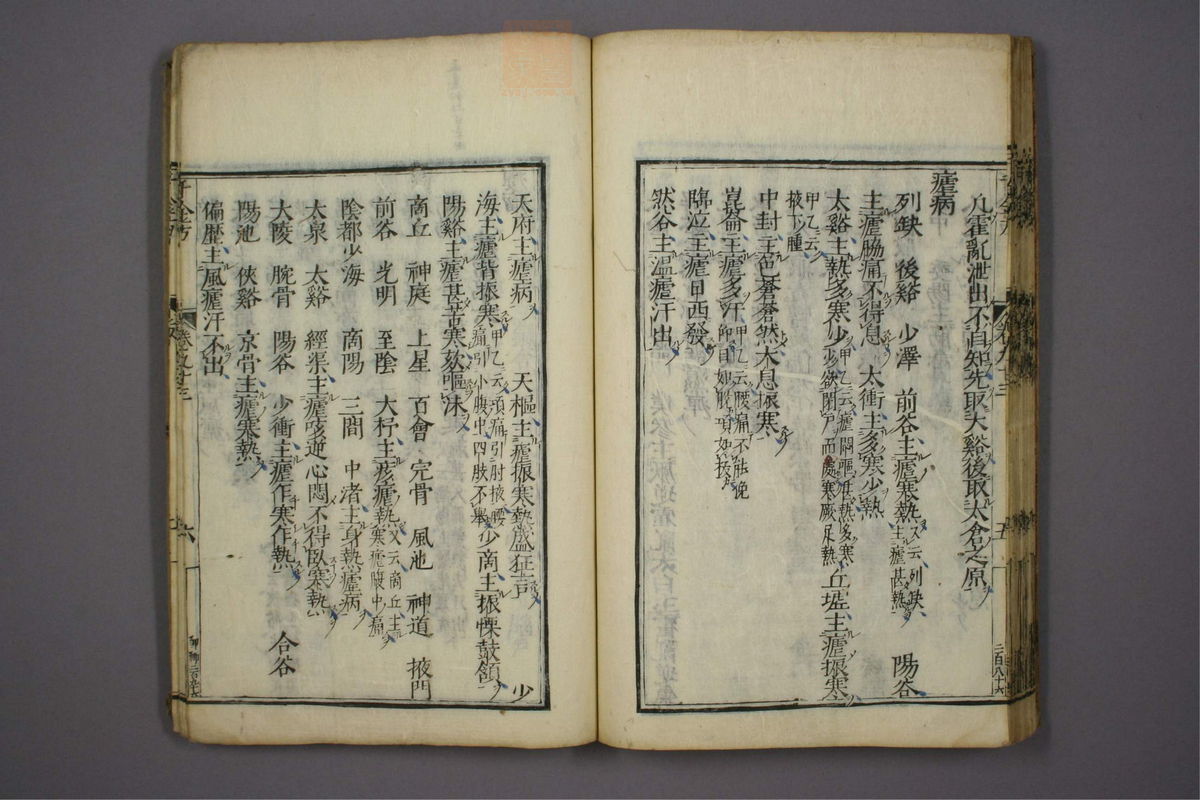 凡霍亂泄出不自知先取太谿後取太倉之原
瘧病
列缺　後谿　少澤　前谷主瘧寒熱又云列缺主瘧甚熱　陽谷
主瘧脇痛不得息　太衝主多寒少熱
太谿主熱多寒少甲乙云瘧悶嘔甚熱多寒少欲閉戶而處寒厥足熱　丘墟主瘧振寒
甲乙云掖下腫
中封主色蒼蒼然太息振寒
崑崙主瘧多汗甲乙云腰痛不能俛仰目如脫項如拔
臨泣主瘧日西發
然谷主溫瘧汗出
天府主瘧病　　天樞主瘧振寒熱盛狂言　　少
海主瘧背振寒甲乙云項痛引肘掖腰痛引小腹中四肢不舉　少商主振慄鼓頷
陽谿主瘧甚苦寒欬嘔沫
商丘　神庭　上星　百會　完骨　風池　神道　掖門
前谷　光明　至陰　大杼主痎瘧熱又云商丘主寒瘧腹中痛
陰都少海　商陽　三間　中渚主身熱瘧病
太泉　太谿　經渠主瘧咳逆心悶不得臥寒熱
大陵　腕骨　陽谷　少衝主瘧乍寒乍熱　　合谷
陽池　俠谿　京骨主瘧寒熱
偏歷主風瘧汗不出
五
二百八十六
六